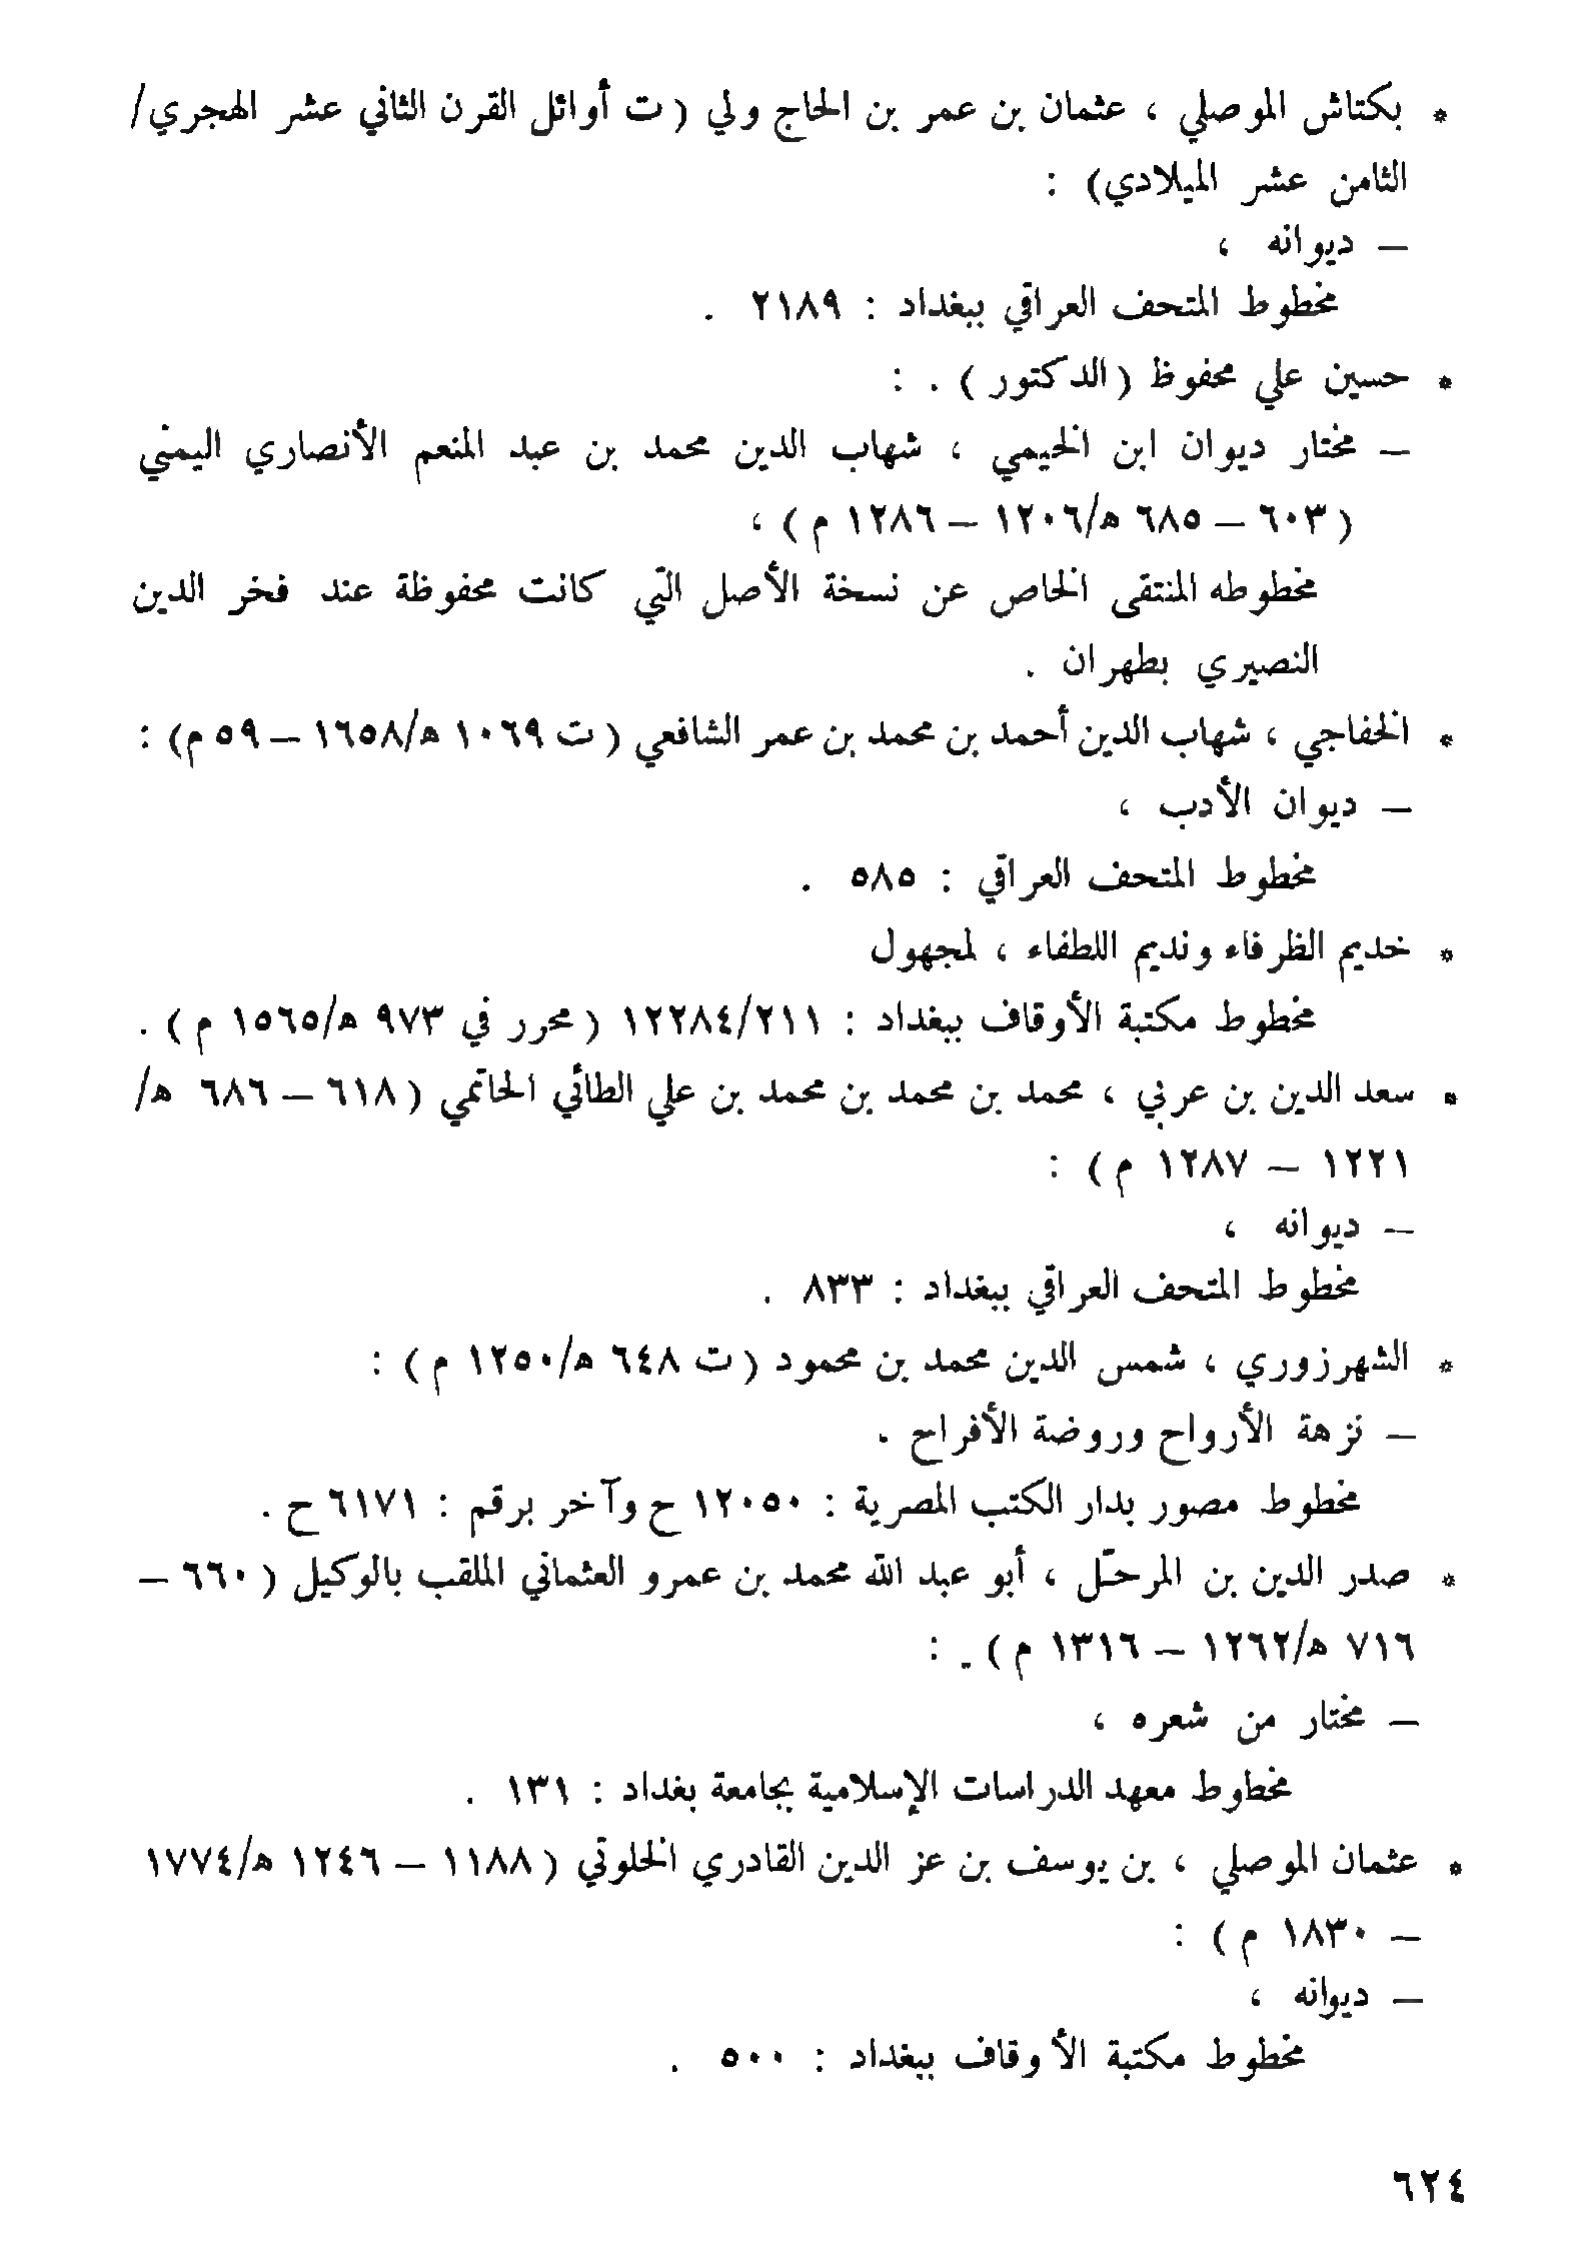 * بكتاش الموصلي ، عثمان بن عمر بن الحاج ولي ( ت أوائل القرن الثاني عشر الهجري/
الثامن عشر الميلادي) :
– ديوانه ،
مخطوط المتحف العراقي ببغداد : ٢١٨٩ .
* حسين علي محفوظ ( الدكتور ) . :
– مختار ديوان ابن الخيمي ، شهاب الدين محمد بن عبد المنعم الأنصاري اليمني
( ٦٠٣ – ٦٨٥ ه/١٢٠٦ – ١٢٨٦ م ) ،
مخطوطه المنتقى الخاص عن نسخة الأصل التي كانت محفوظة عند فخر الدين
النصيري بطهران .
* الخفاجي ، شهاب الدين أحمد بن محمد بن عمر الشافعي ( ت ١٠٦٩ ه/١٦٥٨ – ٥٩ م) :
– ديوان الأدب ،
مخطوط المتحف العراقي : ٥٨٥ .
* خديم الظرفاء ونديم اللطفاء ، لمجهول
مخطوط مكتبة الأوقاف ببغداد : ١٢٢٨٤/٢١١ ( محرر في ٩٧٣ ه/١٥٦٥ م ) .
* سعد الدين بن عربي ، محمد بن محمد بن محمد بن علي الطائي الحاتمي ( ٦١٨ – ٦٨٦ ه/
١٢٢١ – ١٢٨٧ م ) :
– ديوانه ،
مخطوط المتحف العراقي ببغداد : ٨٣٣ .
* الشهرزوري ، شمس الدين محمد بن محمود ( ت ٦٤٨ ه/١٢٥٠ م ) :
– نزهة الأرواح وروضة الأفراح .
مخطوط مصور بدار الكتب المصرية : ١٢٠٥٠ ح وآخر برقم : ٦١٧١ ح .
* صدر الدين بن المرحّل ، أبو عبد الله محمد بن عمرو العثماني الملقب بالوكيل ( ٦٦٠ –
٧١٦ ه/١٢٦٢ – ١٣١٦ م ) . :
– مختار من شعره ،
مخطوط معهد الدراسات الإسلامية بجامعة بغداد : ١٣١ .
* عثمان الموصلي ، بن يوسف بن عز الدين القادري الخلوتي ( ١١٨٨ – ١٢٤٦ ه/١٧٧٤
– ١٨٣٠ م ) :
– ديوانه ،
مخطوط مكتبة الأوقاف ببغداد : ٥٠٠ .
٦٢٤